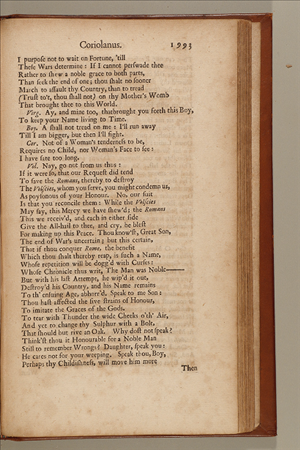 Coriolanus. 1993
I purpose not to wait on Fortune, 'till
These Wars determine: If I cannot perswade thee
Rather to shew a noble grace to both parts,
Than seek the end of one; thou shalt no sooner
March to assault thy Country, than to tread
(Trust to't, thou shalt not) on thy Mother's Womb
That brought thee to this World.
Virg. Ay, and mine too, that brought you forth this Boy,
To keep your Name living to Time.
Boy. A shall not tread on me: I'll run away
Till I am bigger, but then I'll fight.
Cor. Not of a Woman's tenderness to be,
Requires no Child, nor Woman's Face to see:
I have sate too long.
Vol. Nay, go not from us thus:
If it were so, that our Request did tend
To save the Romans, thereby to destroy
The Volscies, whom you serve, you might condemn us,
As poysonous of your Honour. No, our suit
Is that you reconcile them: While the Volscies
May say, this Mercy we have shew'd; the Romans
This we receiv'd, and each in either side
Give the All-hail to thee, and cry, be blest
For making up this Peace. Thou know'st, Great Son,
The end of War's uncertain; but this certain,
That if thou conquer Rome, the benefit
Which thou shalt thereby reap, is such a Name,
Whose repetition will be dogg'd with Curses:
Whose Chronicle thus writ, The Man was Noble——
But with his last Attempt, he wip'd it out,
Destroy'd his Country, and his Name remains
To th' ensuing Age, abhorr'd. Speak to me Son:
Thou hast affected the five strains of Honour,
To imitate the Graces of the Gods.
To tear with Thunder the wide Cheeks o'th' Air,
And yet to change thy Sulphur with a Bolt,
That should but rive an Oak. Why dost not speak?
Think'st thou it Honourable for a Noble Man
Still to remember Wrongs? Daughter, speak you:
He cares not for your weeping. Speak thou, Boy,
Perhaps thy Childishness, will move him more
Then